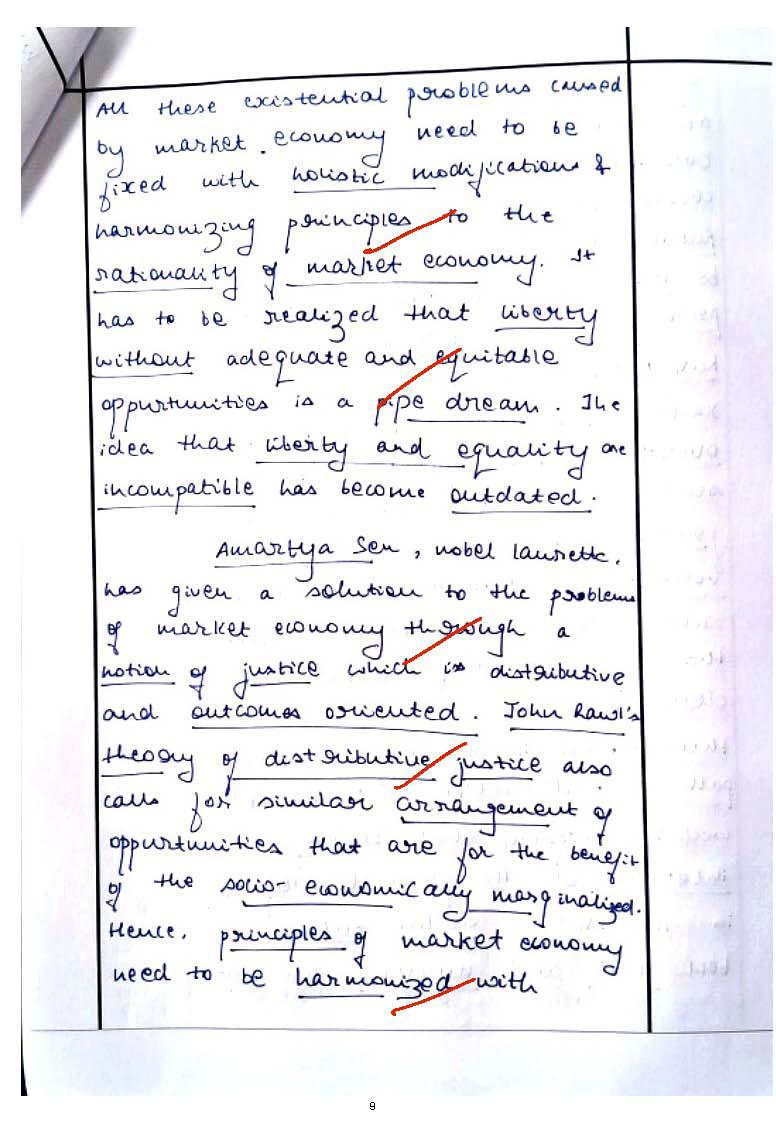 All these existential problems caused
by market economy need to be
fixed with holistic modifications &
harmonizing principles to the
rationality of market economy. It
has to be realized that liberty
without adequate and equitable
oppurtunities is a pipe dream. The
idea that liberty and equality are
incompatible has become outdated.
Amartya Sen, nobel laurette,
has given a solution to the problems
of market economy through a
notion of justice which is distributive
and outcomes oriented. John Rawl's
theory of distributive justice also
calls for similar arrangement of
oppurtunities that are for the benefit
of the socio-economically marginalized.
Hence, principles of market economy
need to be harmonized with
9